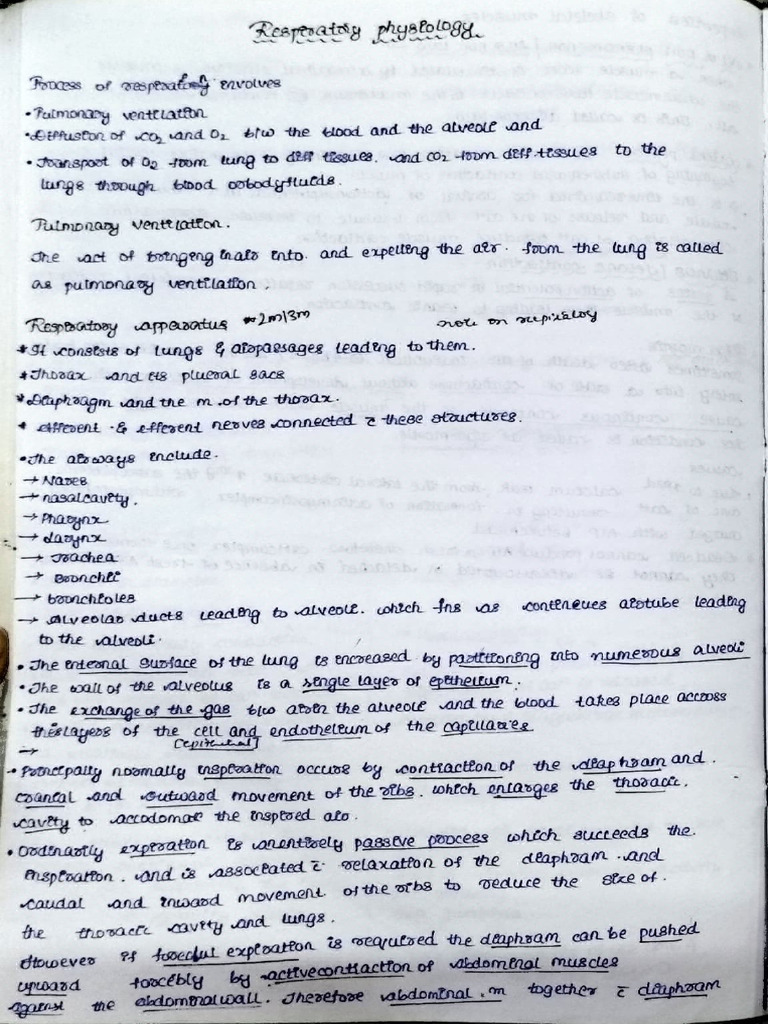 Respiratory physiology.
Process of respiration involves
• Pulmonary ventilation
• Diffusion of CO2 and O2 b/w the blood and the alveoli and
• Transport of O2 from lung to diff tissues. and CO2 from diff tissues to the
lungs through blood or body fluids.
Pulmonary ventilation.
The act of bringing in air into and expelling the air. from the lung is called
as pulmonary ventilation.
Respiratory apparatus * 2m/3m note on respiratory
* It consists of lungs & airpassages leading to them.
* Thorax and its plueral sacs
* Diaphragm and the m. of the thorax.
* afferent & efferent nerves connected c̄ these structures.
• The airways include.
→ Nares
→ nasal cavity.
→ Pharynx
→ Larynx
→ Trachea
→ Bronchii
→ bronchioles
→ Alveolar ducts leading to alveoli. which fns as continues airtube leading
to the alveoli.
• The internal surface of the lung is increased by partitioning into numerous alveoli
• The wall of the alveolus is a single layer of epithelium.
• The exchange of the gas b/w air in the alveoli and the blood takes place accross
this layers of the cell and endothelium of the capillaries
[epithelial]
→
• Principally normally inspiration occurs by contraction of the diaphram and.
cranial and outward movement of the ribs. which enlarges the thoracic.
cavity to accodomat the inspired air.
• Ordinarily expiration is an entirely passive process which succeeds the.
inspiration. and is associated c̄ relaxation of the diaphram. and
caudal and inward movement of the ribs to reduce the size of.
the thoracic cavity and lungs.
However if forceful expiration is required the diaphram can be pushed
upward forcibly by active contraction of abdominal muscles
against the abdominal wall. Therefore abdominal. m together c̄ diaphram